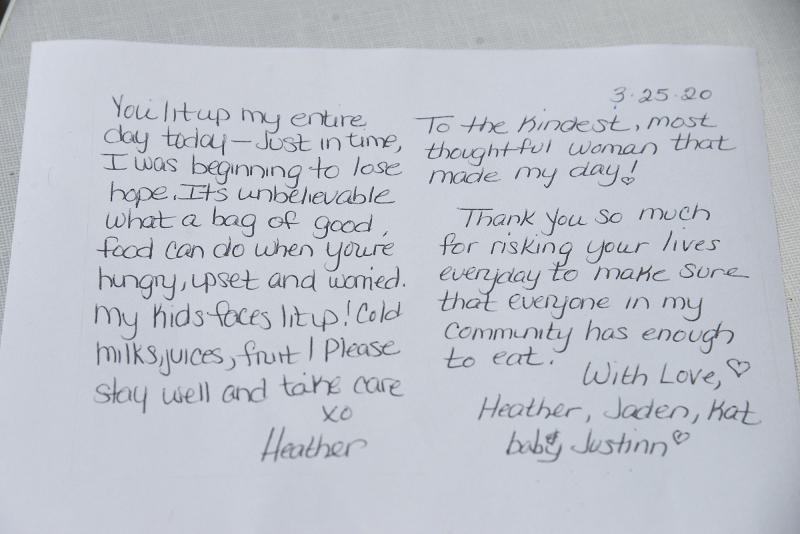 You lit up my entire
day today — Just in time,
I was beginning to lose
hope. Its unbelievable
what a bag of good,
food can do when you're
hungry, upset and worried.
My kids faces lit up! Cold
milks, juices, fruit! Please
stay well and take care
xo
Heather
3·25·20
To the kindest, most
thoughtful woman that
made my day!
Thank you so much
for risking your lives
everyday to make sure
that everyone in my
community has enough
to eat.
With Love, ♡
Heather, Jaden, Kat
baby Justinn ♡